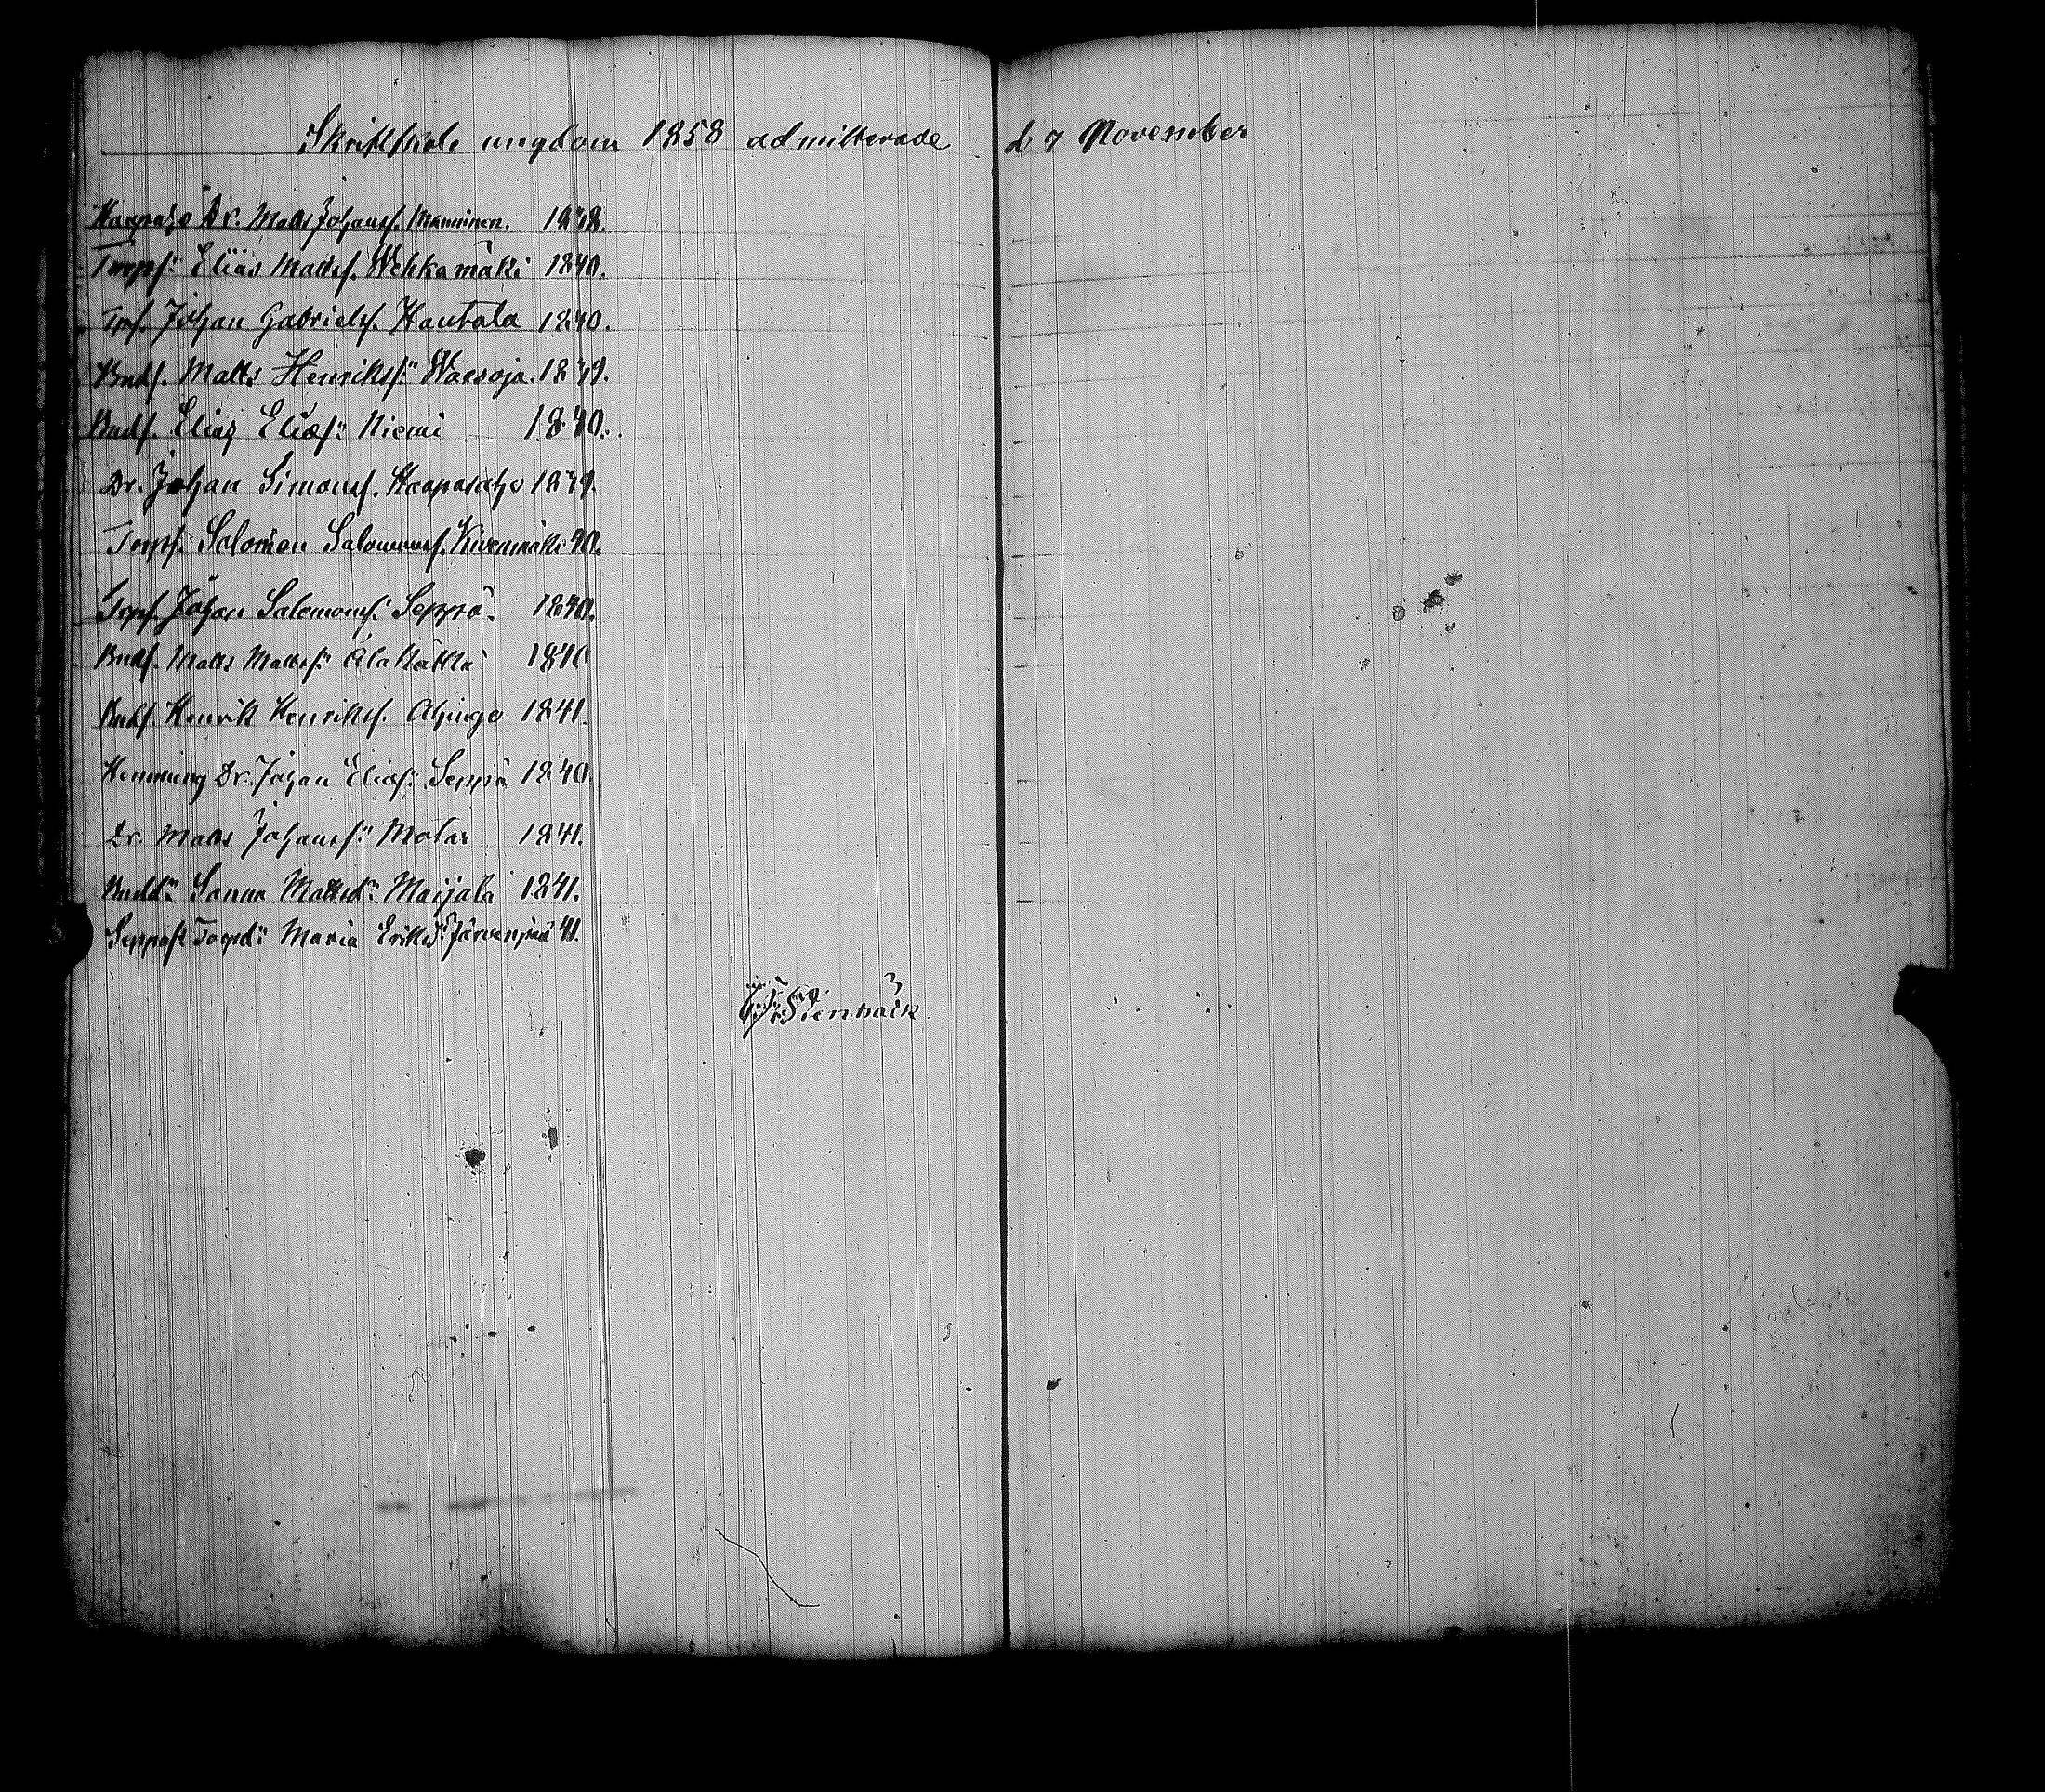 Skriftskole ungdom 1858 admitterade d. 7 November
Kaapaho Dr. Matts Johanss. Manninen. 1838.
Torps: Elias Mattss. Wehkamäki 1840.
Tps. Johan Gabrielss. Kautola 1840.
Bnds. Matts Henrikss: Waesoja. 1839.
Bnds. Elias Eliæs: Niemi 1840.
Dr. Johan Simonss. Kaapaidaho 1839.
Torps. Salomon Salomonss. Kivenmäki 40.
Torps. Johan Salomonss: Seppä. 1840.
Bnds. Matts Mattss: Ala Kätkä 1840
Bnds. Henrik Henrikss. Ahingo 1841.
Hemming Dr. Johan Eliæs: Seppä 1840.
Dr. Matts Johanss: Molar 1841.
Bndd: Sanna Mattsd: Maijala 1841.
Torpd: Maria Eriksd: Järvenpää 41.
Stenbäck.